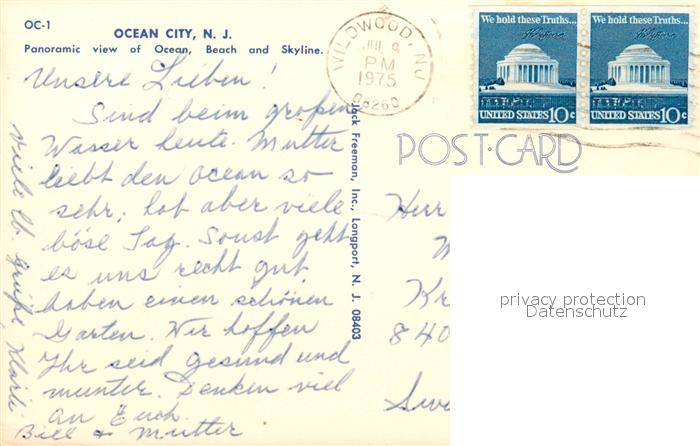 OC-1
OCEAN CITY, N. J.
Panoramic view of Ocean, Beach and Skyline.
Unsere Lieben!
Sind beim großen
Wasser heute. Mutter
liebt den Ocean so
sehr, hat aber viele
böse Tag. Sonst geht
es uns recht gut
haben einen schönen
Garten. Wir hoffen
Ihr seid gesund und
munter. Denken viel
an Euch.
Bill + Mutter
Viele lb. Grüße
Jack Freeman, Inc., Longport, N. J. 08403
WILDWOOD, NJ
PM
1975
08260
We hold these Truths...
UNITED STATES 10c
We hold these Truths...
UNITED STATES 10c
POST CARD
Herr
Kr
840
privacy protection
Datenschutz